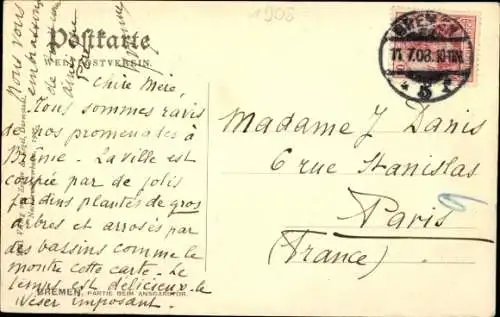 1908
Postkarte
WELTPOSTVEREIN.
BREMEN
11.7.08.
* 5 f
Nous vous
embrassons
de
ainsi que
Chère Mère,
Nous sommes ravis
de nos promenades à
Brême. La ville est
coupée par de jolis
jardins plantés de gros
arbres et arrosés par
des bassins comme le
montre cette carte. Le
temps est délicieux. le
Weser imposant.
BREMEN, PARTIE BEIM ANSGARITOR.
Madame J Danis
6 rue Stanislas
Paris
(France)